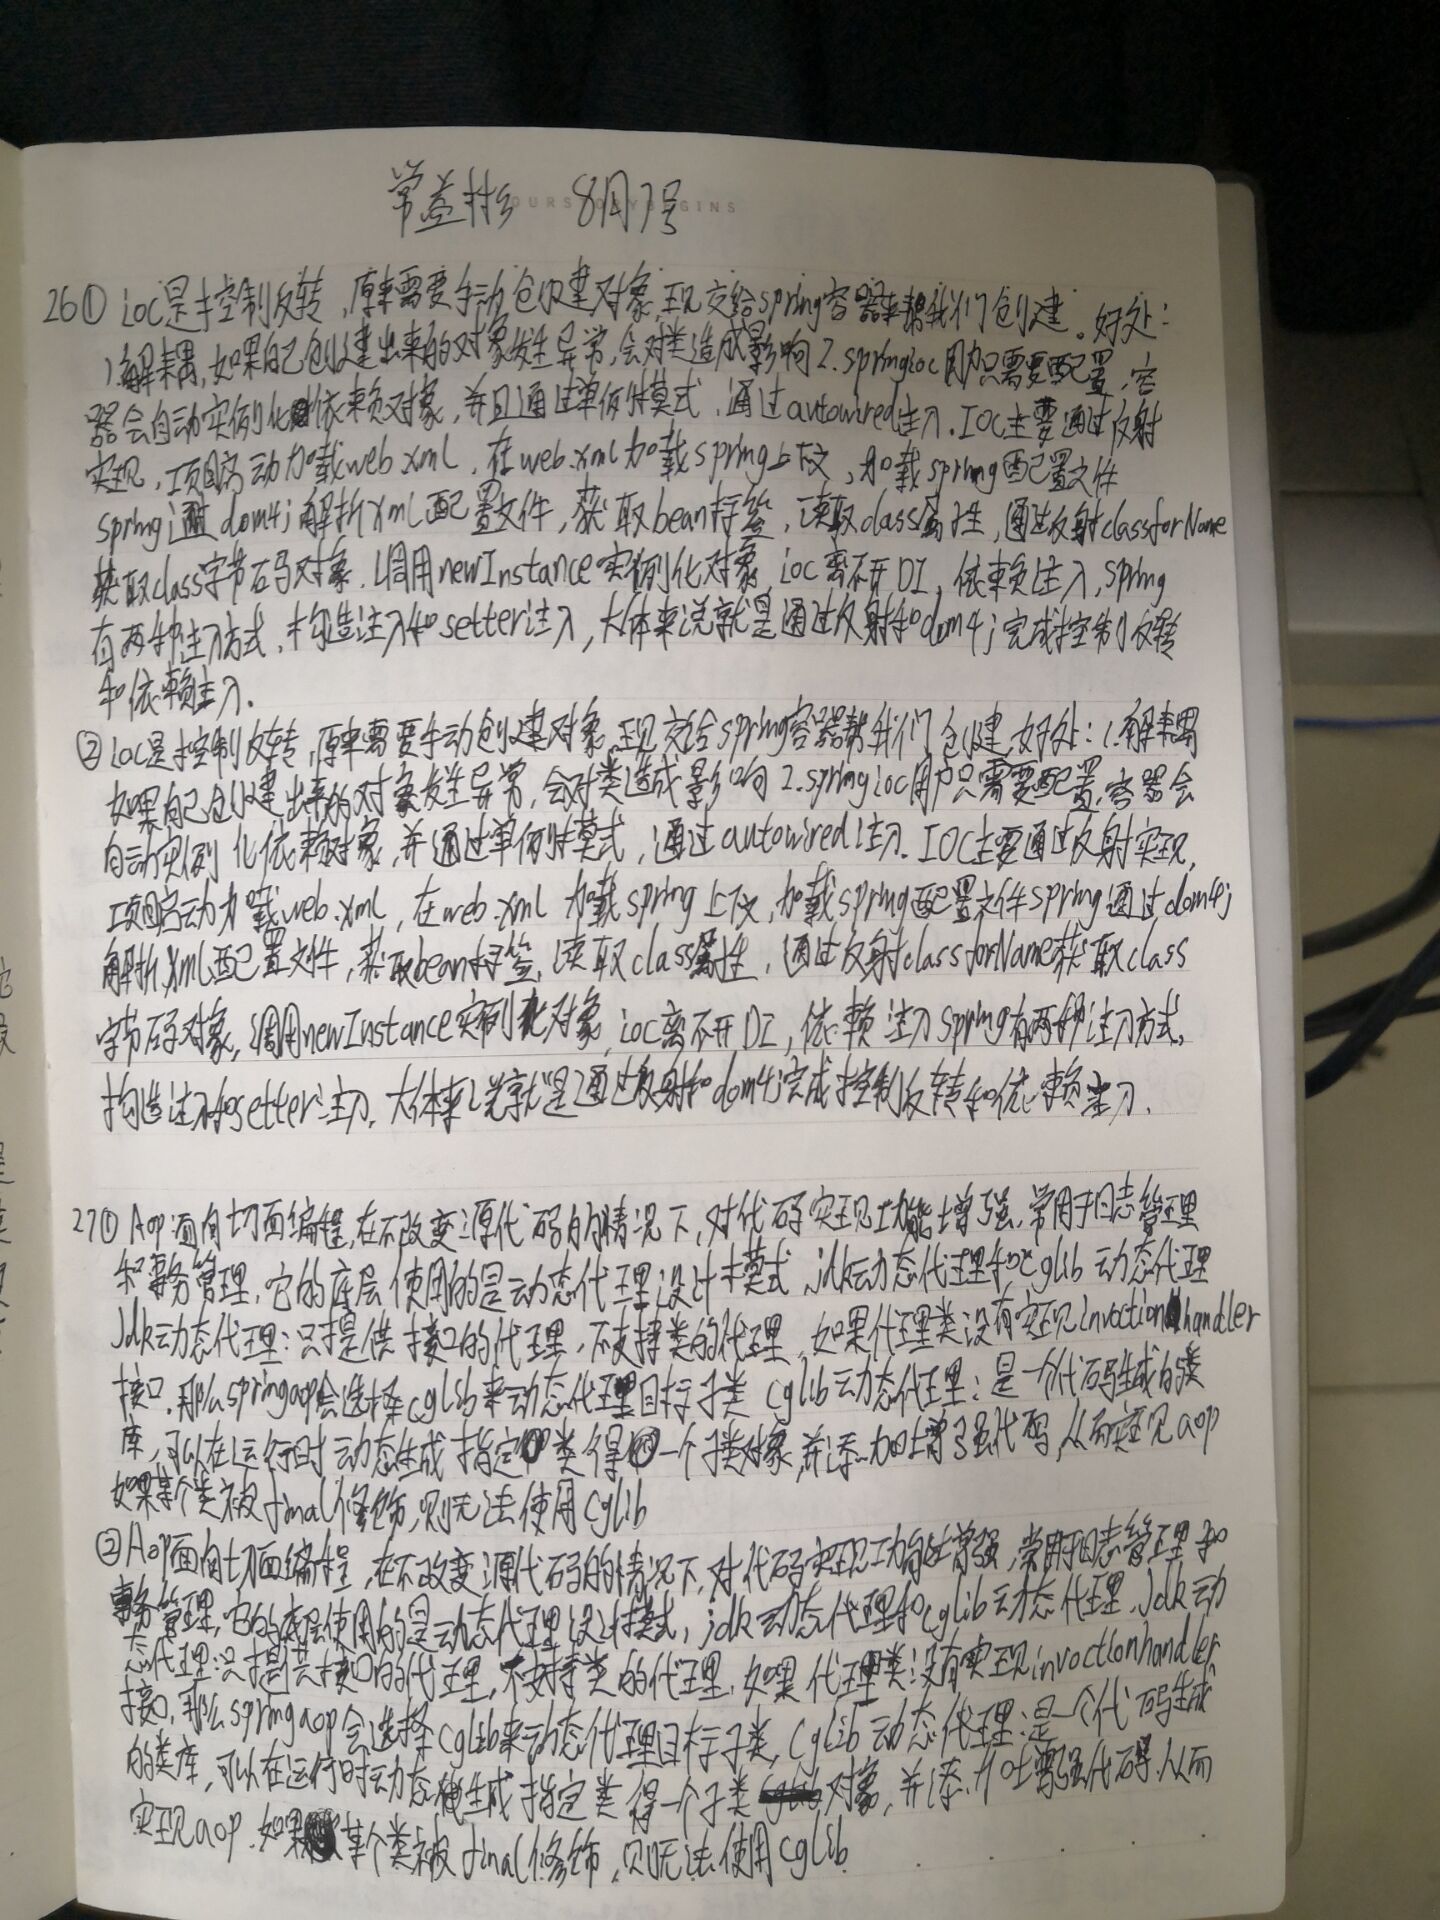 常益打乡 8月7号
26① ioc是控制反转,原来需要手动创建对象,现交给spring容器来帮我们创建。好处:
1.解耦,如果自己创建出来的对象发生异常,会对类造成影响 2.springioc用户只需要配置,容
器会自动实例化依赖对象,并且通过单例模式,通过autowired注入.IOC主要通过反射
实现,项目启动加载web.xml,在web.xml加载spring上下文,加载spring配置文件
spring通过dom4j解析xml配置文件,获取bean标签,读取class属性,通过反射classforName
获取class字节码对象,调用newInstance实例化对象,ioc离不开DI,依赖注入,spring
有两种注入方式,构造注入和setter注入,大体来说就是通过反射和dom4j完成控制反转
和依赖注入.
② ioc是控制反转,原来需要手动创建对象,现交给spring容器帮我们创建,好处:1.解耦
如果自己创建出来的对象发生异常,会对类造成影响 2.spring ioc用户只需要配置,容器会
自动实例化依赖对象,并通过单例模式,通过autowired注入.IOC主要通过反射实现,
项目启动加载web.xml,在web.xml加载spring上下文,加载spring配置文件spring通过dom4j
解析xml配置文件,获取bean标签,读取class属性,通过反射classforName获取class
字节码对象,调用newInstance实例化对象,ioc离不开DI,依赖注入spring有两种注入方式,
构造注入和setter注入,大体来说就是通过反射和dom4j完成控制反转和依赖注入.
27① Aop面向切面编程,在不改变源代码的情况下,对代码实现功能增强,常用于日志管理
和事务管理,它的底层使用的是动态代理设计模式,jdk动态代理和cglib动态代理
Jdk动态代理:只提供接口的代理,不支持类的代理,如果代理类没有实现invoctionhandler
接口,那么springaop会选择cglib来动态代理目标子类 cglib动态代理:是一个代码生成的类
库,可以在运行时动态生成指定类得一个子类对象,并添加增强代码,从而实现aop
如果某个类被final修饰,则无法使用cglib
② Aop面向切面编程,在不改变源代码的情况下,对代码实现功能增强,常用于日志管理和
事务管理,它的底层使用的是动态代理设计模式,jdk动态代理和cglib动态代理,Jdk动
态代理:只提供接口的代理,不支持类的代理,如果代理类没有实现invoctionhandler
接口,那么springaop会选择cglib来动态代理目标子类,cglib动态代理:是一个代码生成
的类库,可以在运行时动态生成指定类得一个子类对象,并添加增强代码,从而
实现aop.如果某个类被final修饰,则无法使用cglib